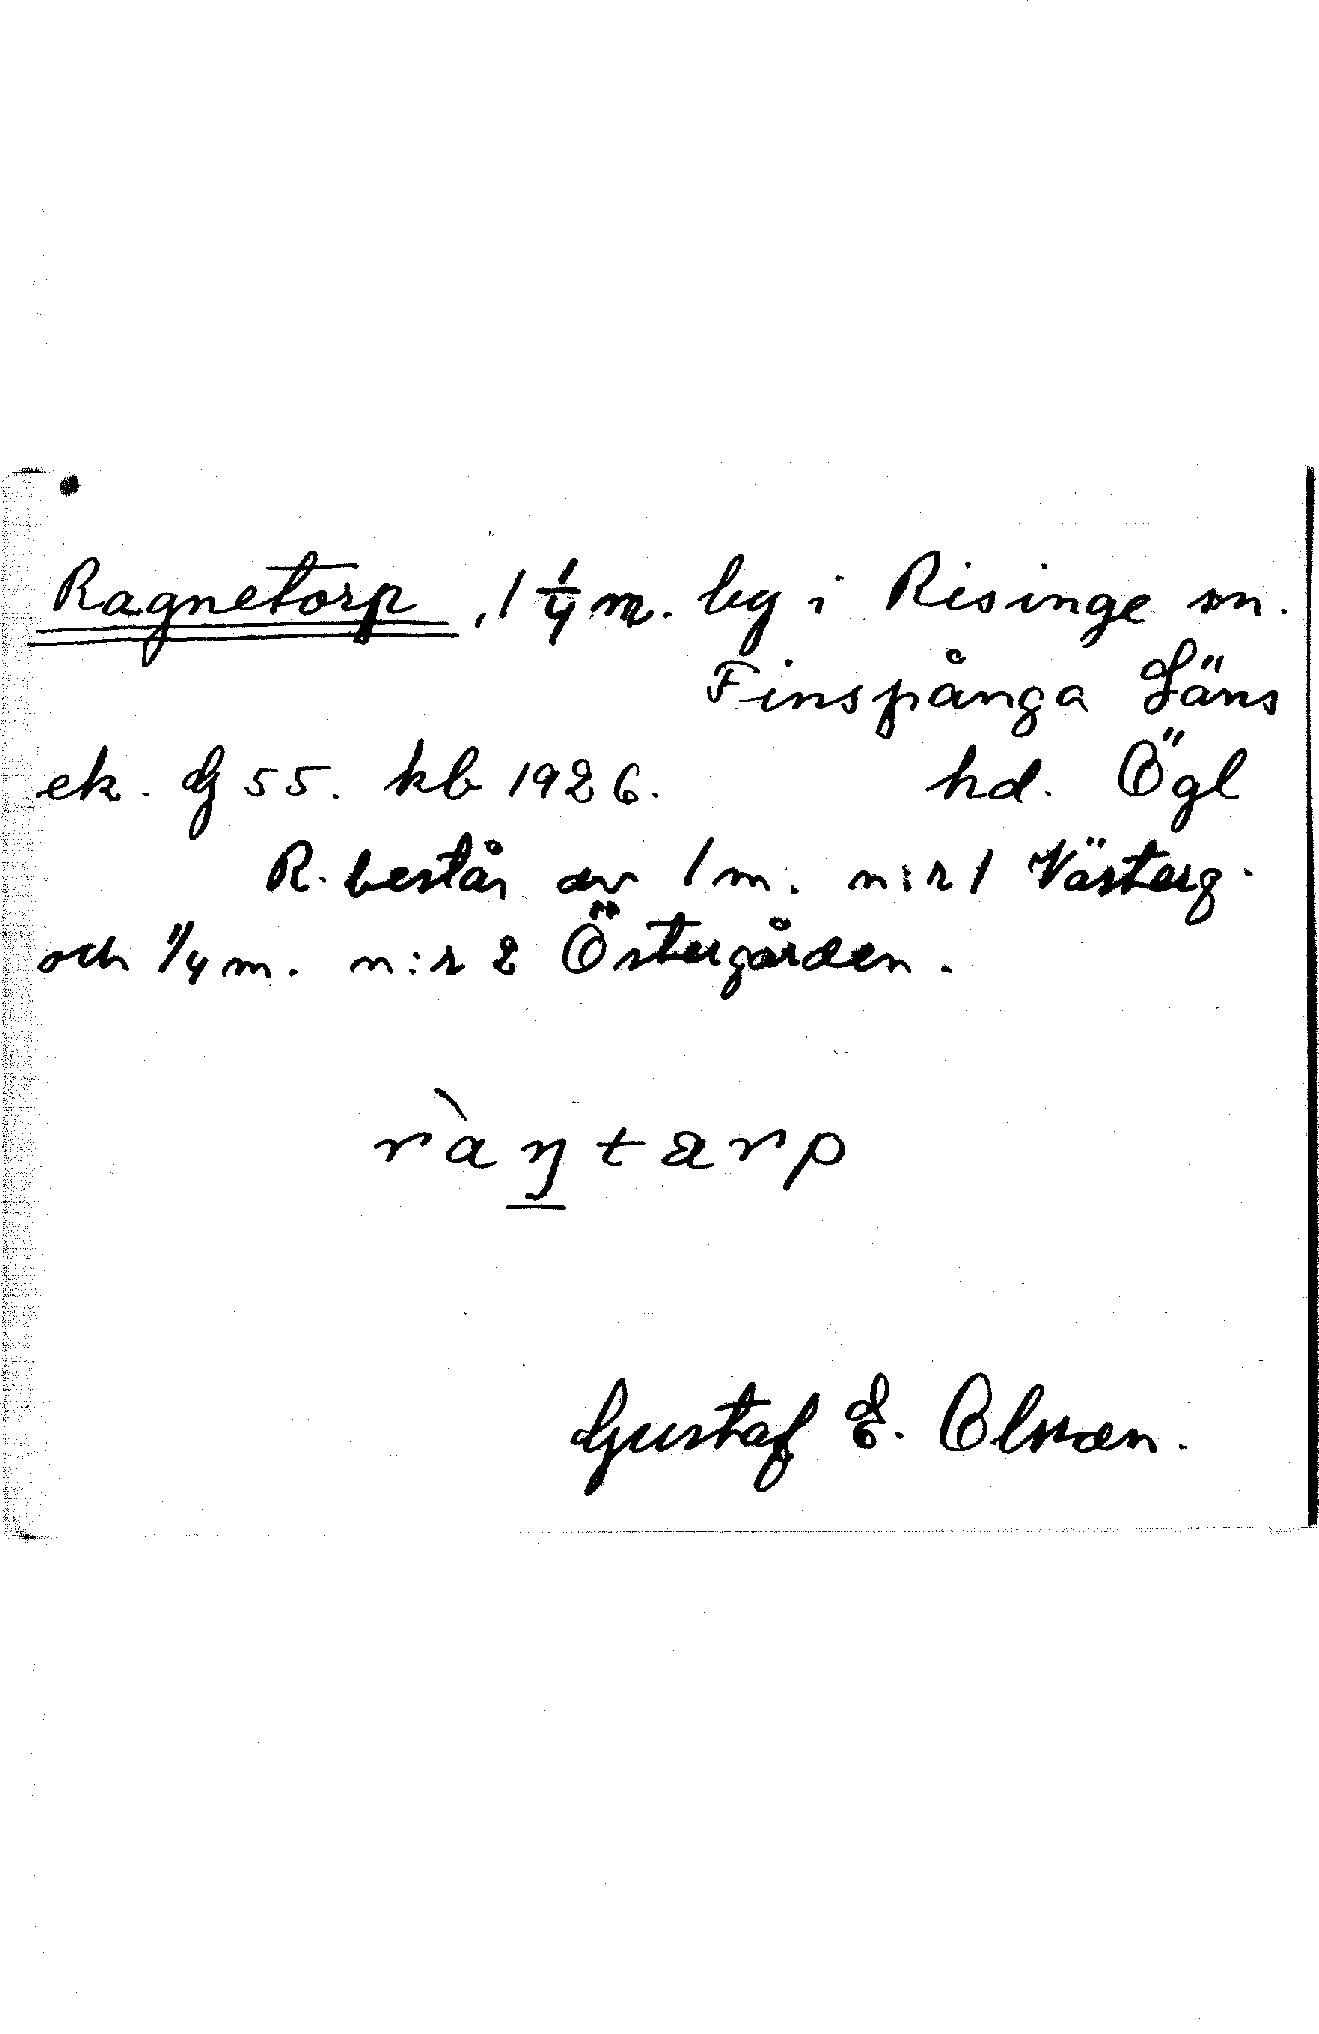 Ragnetorp, 1 1/4 m. by i Risinge sn.
Finspånga Läns
ek. dj 55. kb 1926. hd. Ögl
R. består av 1 m. n:r 1 Västerg.
och 1/4 m. n:r 2 Östergården.
ràŋtarp
Gustaf E. Olsson.